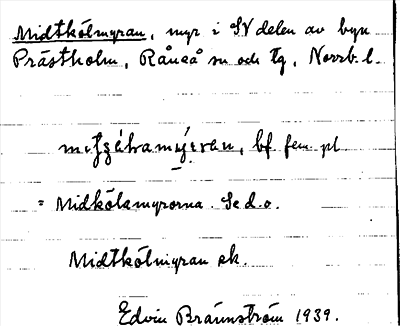 Midtkölmyran, myr i SV delen av byn
Prästholm, Råneå sn och tg, Norrb. l.
bf. fem. pl.
= Midkölsmyrorna. Se d. o.
Midtkölmyran ek.
Edvin Brännström 1939.